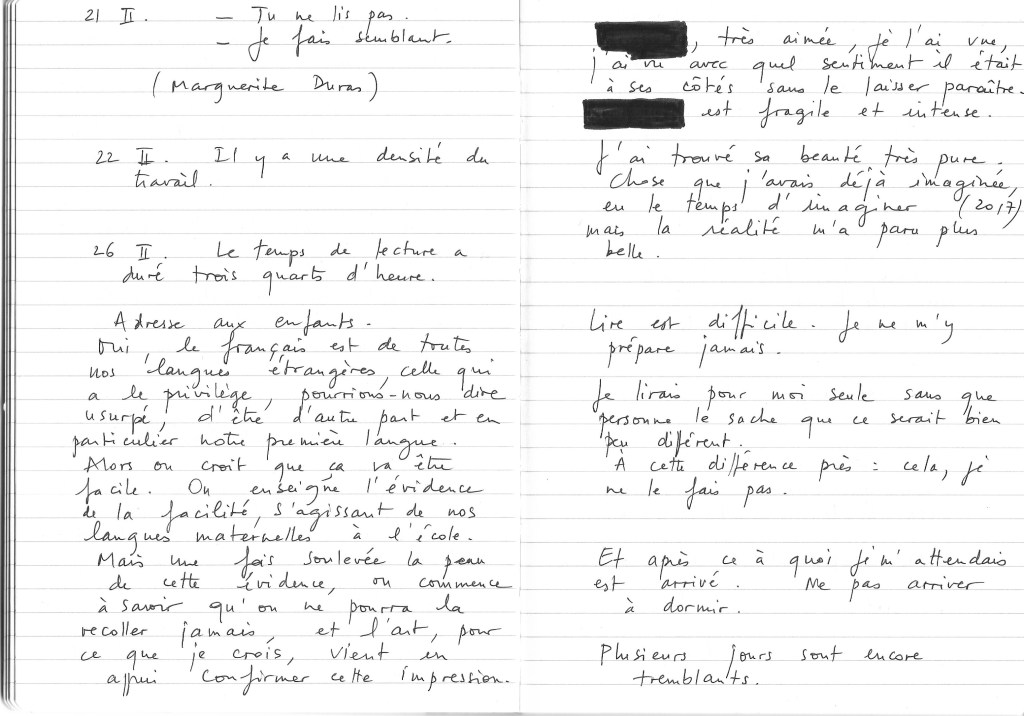 21 II. — Tu ne lis pas.
— Je fais semblant.
(Marguerite Duras)
22 II. Il y a une densité du
travail.
26 II. Le temps de lecture a
duré trois quarts d'heure.
Adresse aux enfants.
Oui, le français est de toutes
nos langues étrangères, celle qui
a le privilège, pourrions-nous dire
usurpé, d'être d'autre part et en
particulier notre première langue.
Alors on croit que ça va être
facile. On enseigne l'évidence
de la facilité, s'agissant de nos
langues maternelles à l'école.
Mais une fois soulevée la peau
de cette évidence, on commence
à savoir qu'on ne pourra la
recoller jamais, et l'art, pour
ce que je crois, vient en
appui confirmer cette impression.
, très aimée, je l'ai vue,
j'ai vu avec quel sentiment il était
à ses côtés sans le laisser paraître.
est fragile et intense.
J'ai trouvé sa beauté très pure.
Chose que j'avais déjà imaginée,
eu le temps d'imaginer (2017)
mais la réalité m'a paru plus
belle.
Lire est difficile. Je ne m'y
prépare jamais.
Je lirais pour moi seule sans que
personne le sache que ce serait bien
peu différent.
À cette différence près : cela, je
ne le fais pas.
Et après ce à quoi je m'attendais
est arrivé. Ne pas arriver
à dormir.
Plusieurs jours sont encore
tremblants.